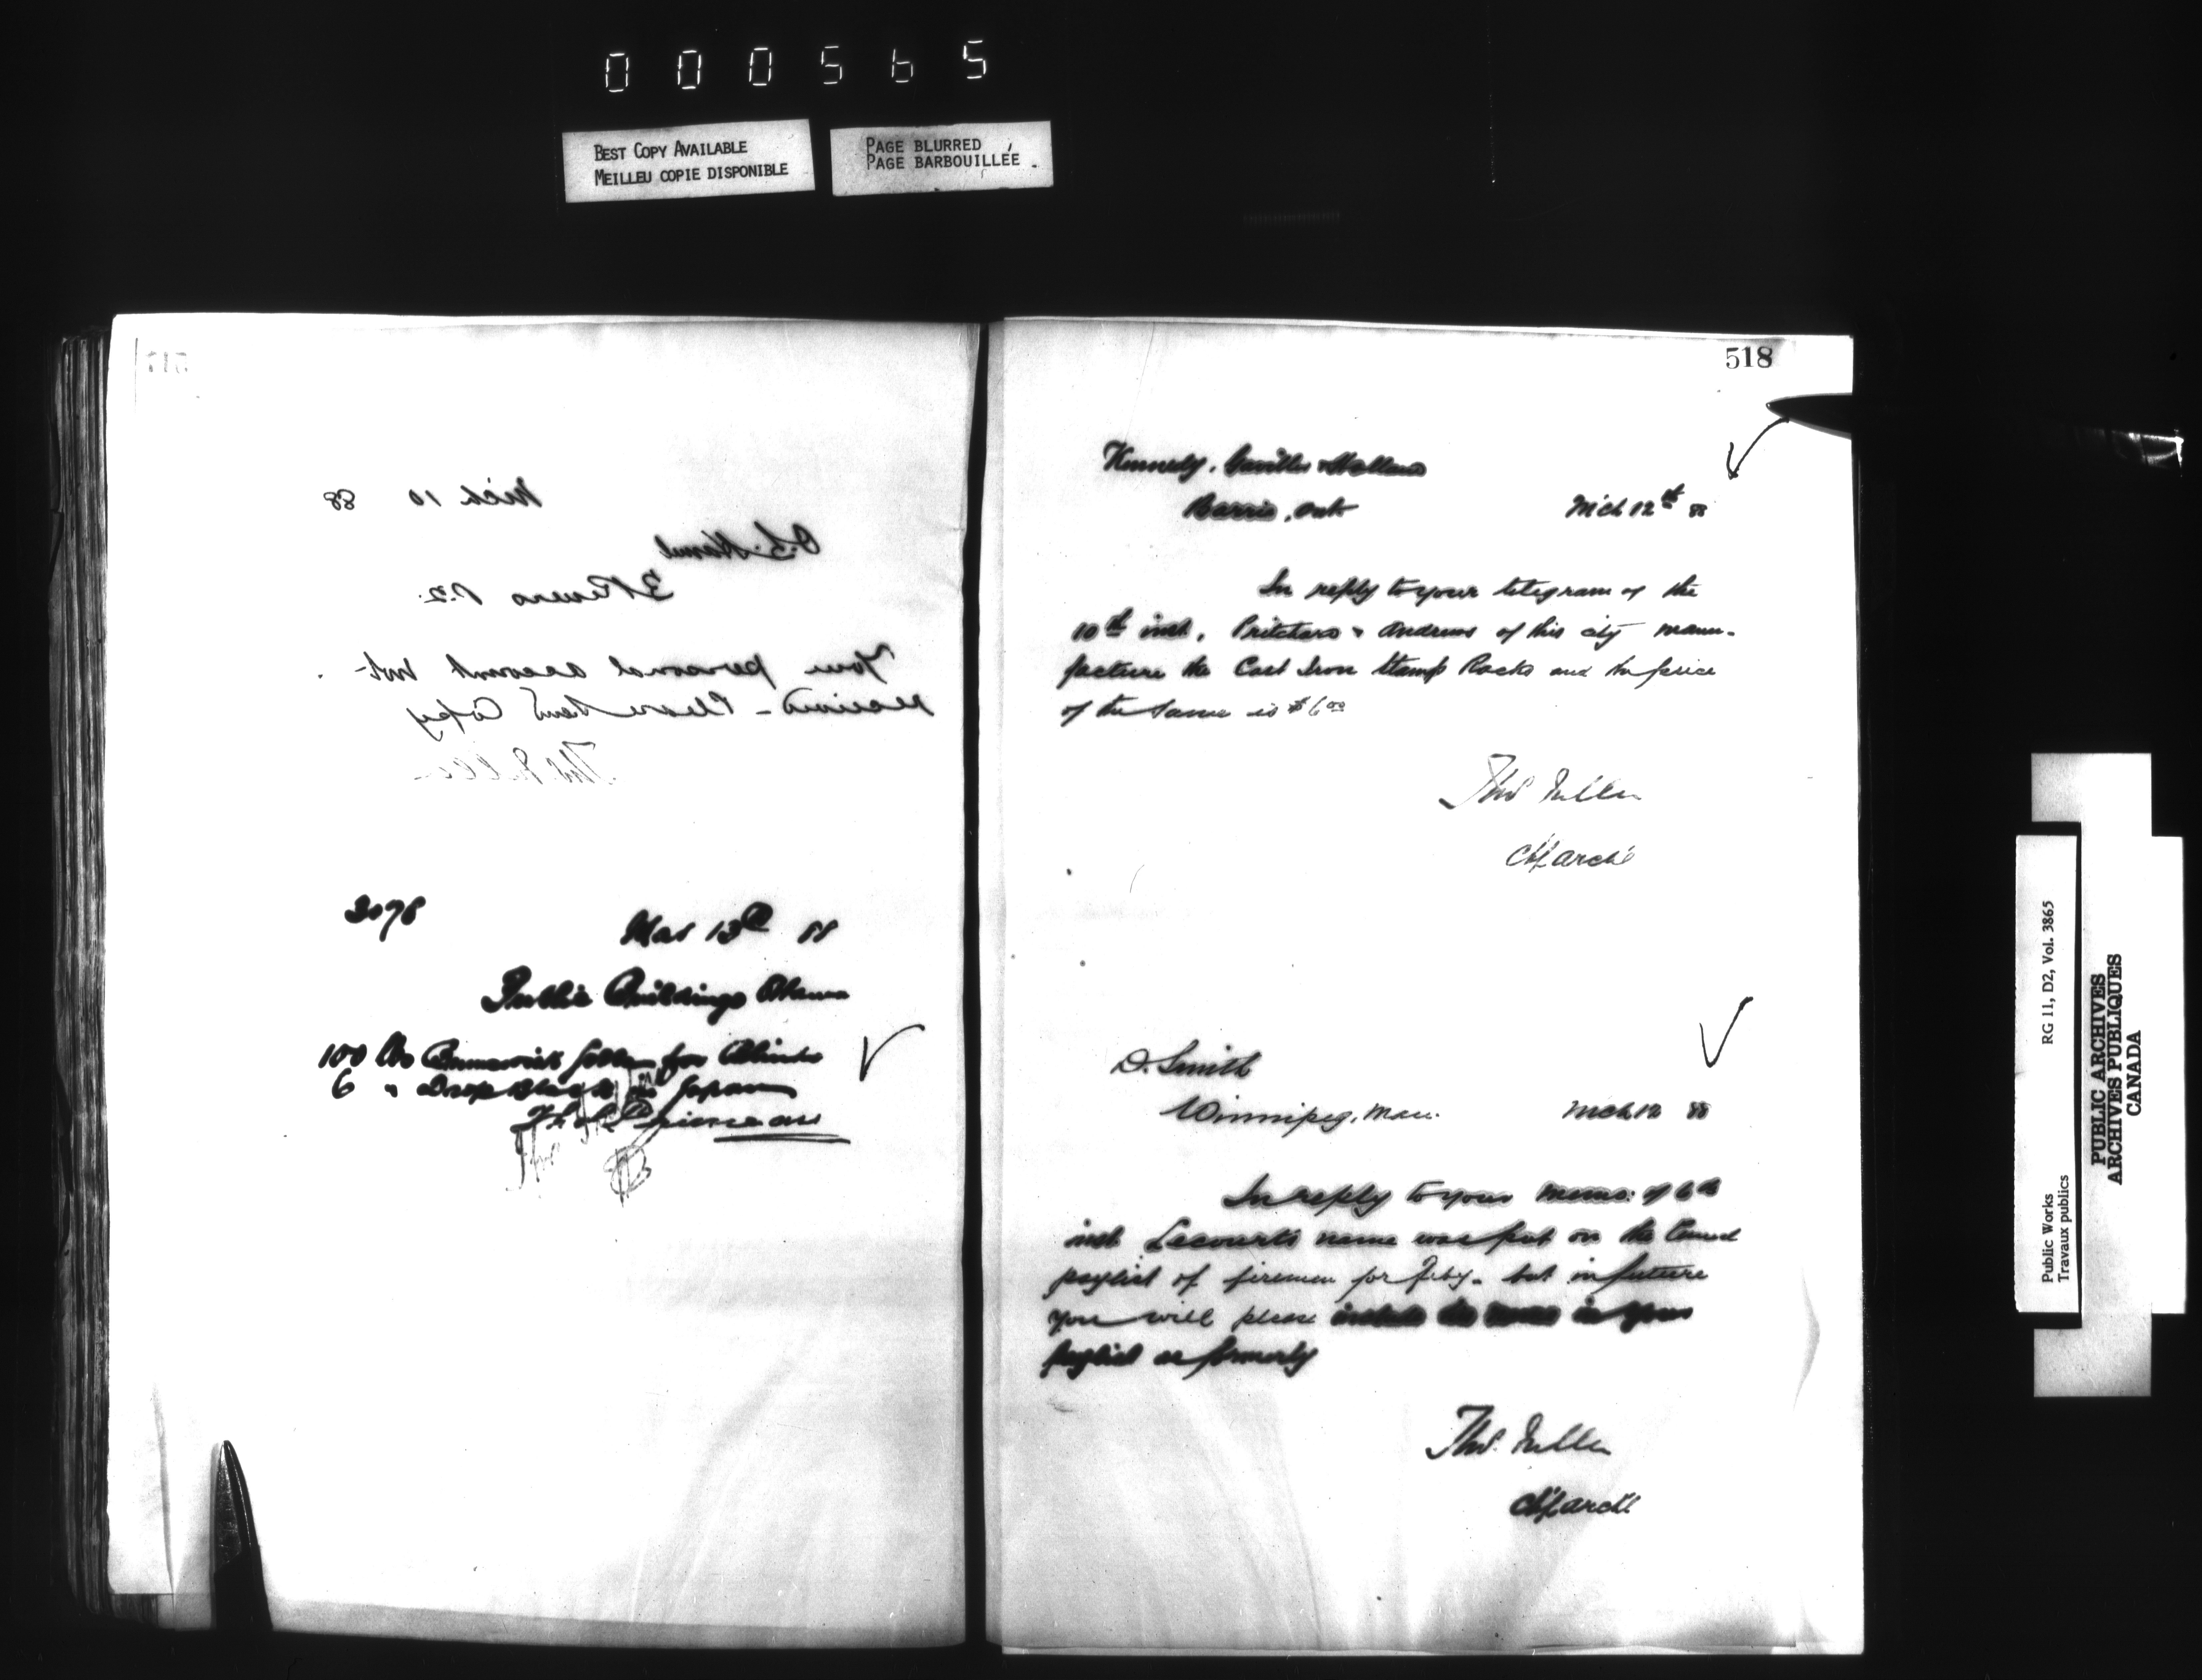 000565
BEST COPY AVAILABLE
MEILLEU COPIE DISPONIBLE
PAGE BLURRED
PAGE BARBOUILLÉE
517
Mch 10 88
3 Rivers P.Q.
Your personal account not
received - Please send Copy
Thos Fuller
3078
Mar 13th 88
Public Buildings Ottawa
100 lbs Brunswick for Blinds
6 " Drop Black in Japan
518
Kennedy,
Barrie, Ont Mch 12th 88
In reply to your telegram of the
10th inst, Pritchard & Andrews of this city manu-
facture the Cast Iron Stamp Racks and the price
of the same is $6.00
Thos Fuller
Chf Archt
D. Smith
Winnipeg, Man. Mch 12 88
In reply to your memo: of 6th
inst Lecourt's name was put on the
paylist of firemen for Feby. but in future
you will please include his name in your
paylist as formerly
Thos. Fuller
Chf Archt
Public Works
Travaux publics
RG 11, D2, Vol. 3865
PUBLIC ARCHIVES
ARCHIVES PUBLIQUES
CANADA